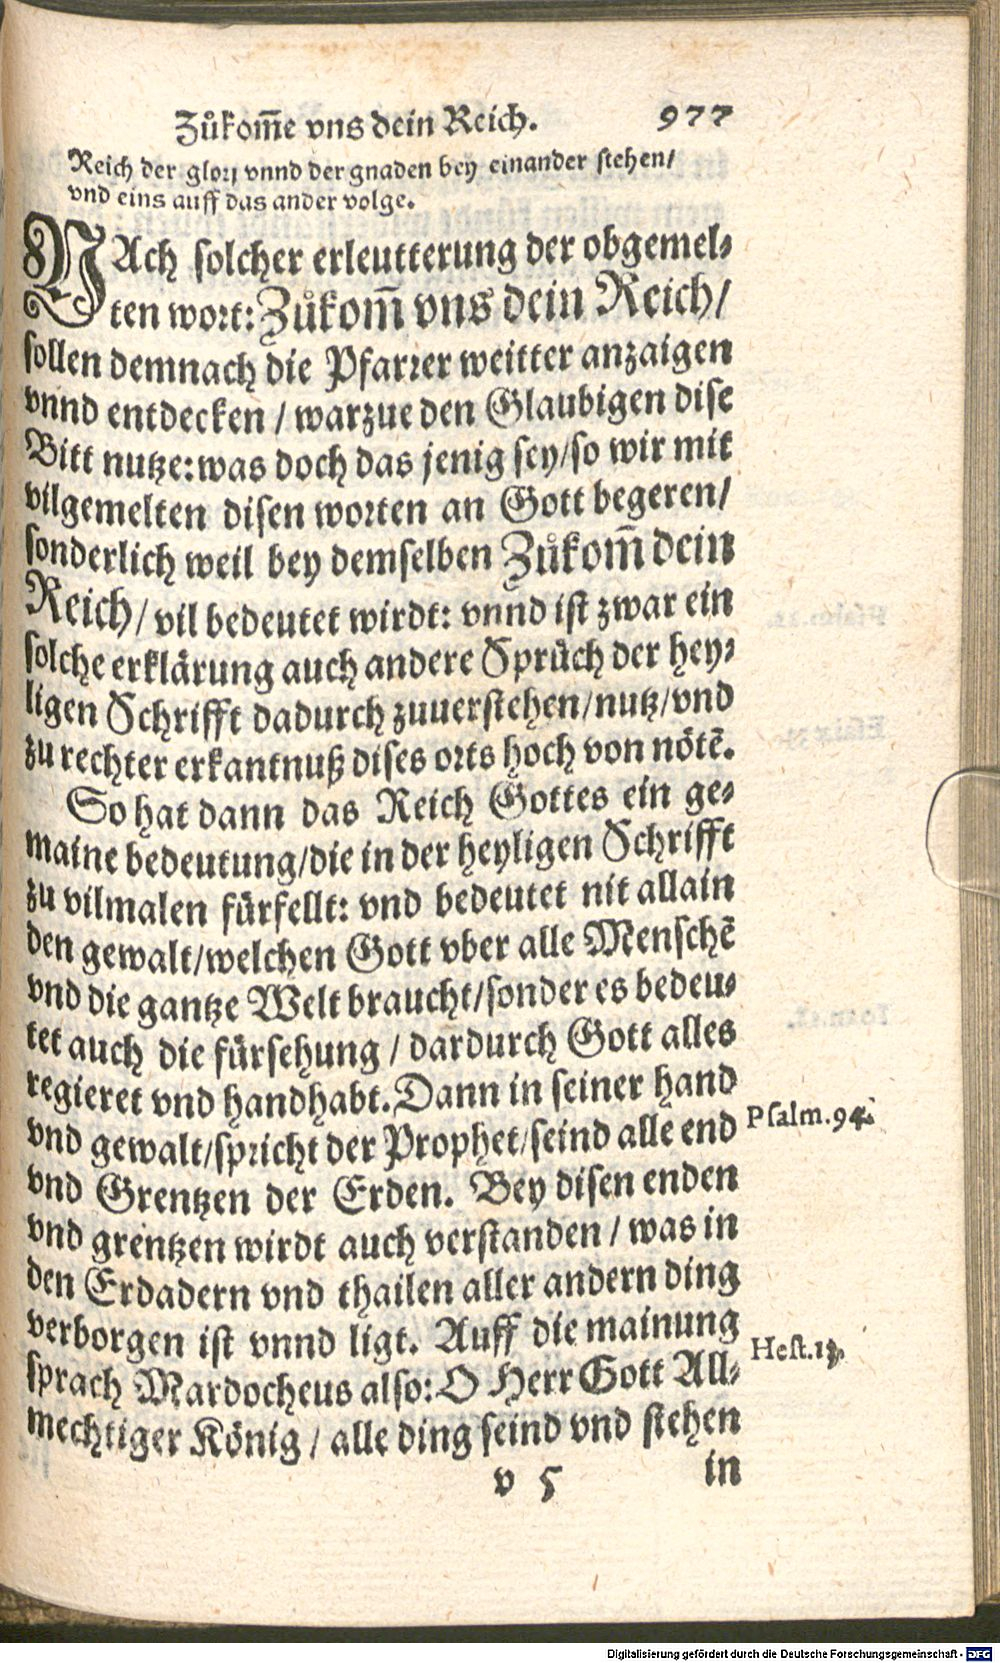 Zůkom̃e vns dein Reich. 977
Reich der glorj vnnd der gnaden bey einander stehen/
vnd eins auff das ander volge.
NAch solcher erleutterung der obgemel⸗
ten wort: Zůkom̃ vns dein Reich/
sollen demnach die Pfarrer weitter anzaigen
vnnd entdecken / warzue den Glaubigen dise
Bitt nutze: was doch das jenig sey/so wir mit
vilgemelten disen worten an Gott begeren/
sonderlich weil bey demselben Zůkom̃ dein
Reich/ vil bedeutet wirdt: vnnd ist zwar ein
solche erklärung auch andere Sprüch der hey⸗
ligen Schrifft dadurch zuuerstehen/nutz/vnd
zu rechter erkantnuß dises orts hoch von nötẽ.
So hat dann das Reich Gottes ein ge⸗
maine bedeutung/die in der heyligen Schrifft
zu vilmalen fürfellt: vnd bedeutet nit allain
den gewalt/welchen Gott vber alle Menschẽ
vnd die gantze Welt braucht/sonder es bedeu⸗
tet auch die fürsehung / dardurch Gott alles
regieret vnd handhabt. Dann in seiner hand
vnd gewalt/spricht der Prophet/seind alle end
Psalm.94.
vnd Grentzen der Erden. Bey disen enden
vnd grentzen wirdt auch verstanden / was in
den Erdadern vnd thailen aller andern ding
verborgen ist vnnd ligt. Auff die mainung
sprach Mardocheus also: O Herr Gott All⸗
Hest.13.
mechtiger König / alle ding seind vnd stehen
v 5 in
Digitalisierung gefördert durch die Deutsche Forschungsgemeinschaft - DFG